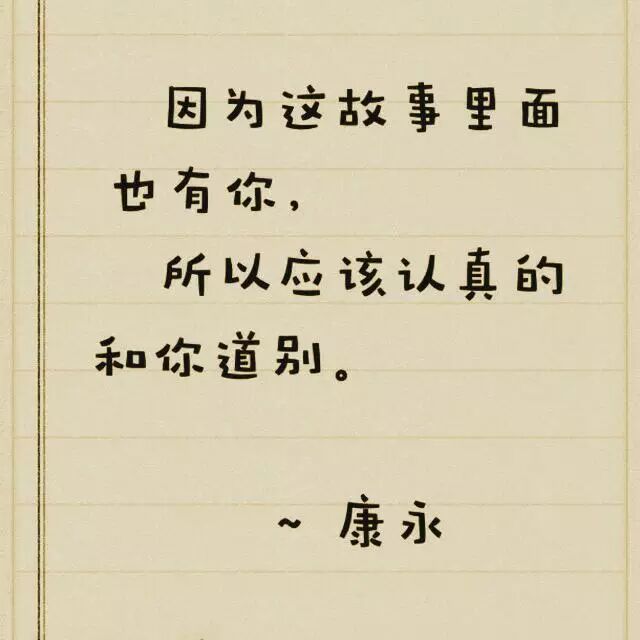 因为这故事里面
也有你，
所以应该认真的
和你道别。
~ 康永